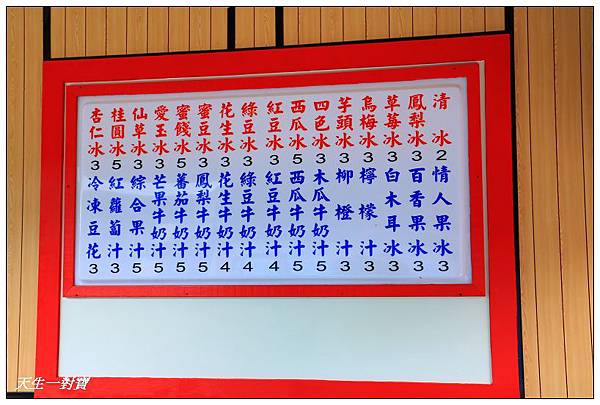 清冰2
鳳梨冰3
草莓冰3
烏梅冰3
芋頭冰3
四色冰3
西瓜冰5
紅豆冰3
綠豆冰3
花生冰3
蜜豆冰3
蜜餞冰5
愛玉冰3
仙草冰3
桂圓冰5
杏仁冰3
情人果冰3
百香果冰3
白木耳冰3
檸檬汁3
柳橙汁3
木瓜牛奶汁5
西瓜牛奶汁5
紅豆牛奶汁4
綠豆牛奶汁4
花生牛奶汁4
鳳梨牛奶汁5
蕃茄牛奶汁5
芒果牛奶汁5
綜合果汁5
紅蘿蔔汁3
冷凍豆花3
天生一對寶